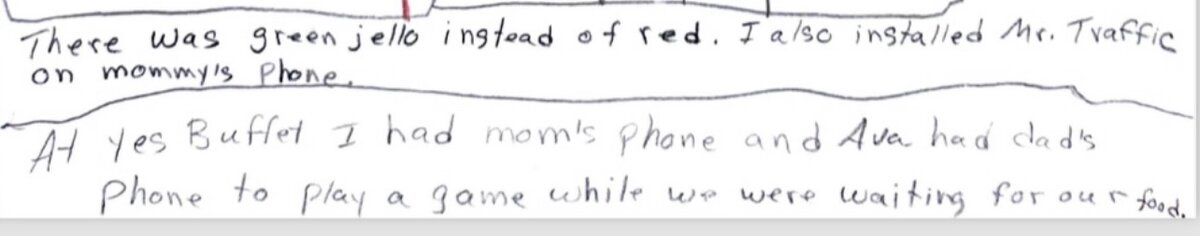 There was green jello instead of red. I also installed Mr. Traffic
on mommy's Phone.
At Yes Buffet I had mom's phone and Ava had dad's
Phone to play a game while we were waiting for our food.